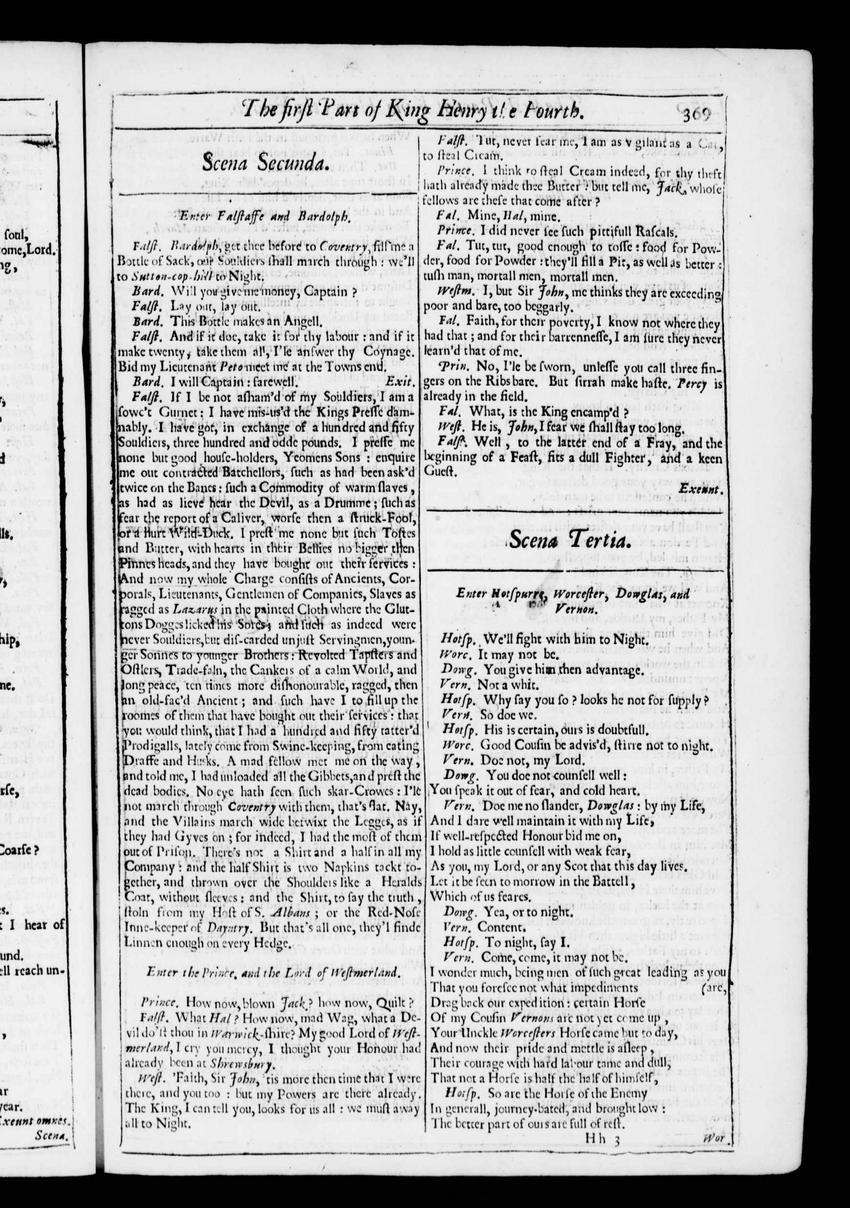 soul,
ome,Lord.
ng,
lls.
ship,
me.
rse,
Coarse?
es.
t I hear of
und.
ell reach un-
ar
year.
Exeunt omnes.
Scena.
The first Part of King Henry the Fourth. 369
Scena Secunda.
Enter Falstaffe and Bardolph.
Falst. Bardolph, get thee before to Coventry, fill me a
Bottle of Sack, our Souldiers shall march through: we'll
to Sutton-cop-hill to Night.
Bard. Will you give me money, Captain?
Falst. Lay out, lay out.
Bard. This Bottle makes an Angell.
Falst. And if it doe, take it for thy labour: and if it
make twenty, take them all, I'le answer thy Coynage.
Bid my Lieutenant Peto meet me at the Towns end.
Bard. I will Captain: farewell. Exit.
Falst. If I be not asham'd of my Souldiers, I am a
sowc't Gurnet: I have mis-us'd the Kings Presse dam-
nably. I have got, in exchange of a hundred and fifty
Souldiers, three hundred and odde pounds. I presse me
none but good house-holders, Yeomens Sons: enquire
me out contracted Batchellors, such as had been ask'd
twice on the Banes: such a Commodity of warm slaves,
as had as lieve hear the Devil, as a Drumme; such as
fear the report of a Caliver, worse then a struck-Fool,
or a hurt Wild-Duck. I prest me none but such Tostes
and Butter, with hearts in their Bellies no bigger then
Pinnes heads, and they have bought out their services:
And now my whole Charge consists of Ancients, Cor-
porals, Lieutenants, Gentlemen of Companies, Slaves as
ragged as Lazarus in the painted Cloth where the Glut-
tons Dogges licked his Sores; and such as indeed were
never Souldiers, but dis-carded unjust Servingmen, youn-
ger Sonnes to younger Brothers: Revolted Tapsters and
Ostlers, Trade-faln, the Cankers of a calm World, and
long peace, ten times more dishonourable, ragged, then
an old-fac'd Ancient; and such have I to fill up the
roomes of them that have bought out their services: that
you would think, that I had a hundred and fifty tatter'd
Prodigalls, lately come from Swine-keeping, from eating
Draffe and Husks. A mad fellow met me on the way,
and told me, I had unloaded all the Gibbets, and prest the
dead bodies. No eye hath seen such skar-Crowes: I'le
not march through Coventry with them, that's flat. Nay,
and the Villains march wide betwixt the Legges, as if
they had Gyves on; for indeed, I had the most of them
out of Prison. There's not a Shirt and a half in all my
Company: and the half Shirt is two Napkins tackt to-
gether, and thrown over the Shoulders like a Heralds
Coat, without sleeves: and the Shirt, to say the truth,
stoln from my Host of S. Albans; or the Red-Nose
Inne-keeper of Dayntry. But that's all one, they'l finde
Linnen enough on every Hedge.
Enter the Prince, and the Lord of Westmerland.
Prince. How now, blown Jack? how now, Quilt?
Falst. What Hal? How now, mad Wag, what a De-
vil do'st thou in Warwick-shire? My good Lord of West-
merland, I cry you mercy, I thought your Honour had
already been at Shrewsbury.
West. 'Faith, Sir John, 'tis more then time that I were
there, and you too: but my Powers are there already.
The King, I can tell you, looks for us all: we must away
all to Night.
Falst. Tut, never fear me, I am as vigilant as a Cat,
to steal Cream.
Prince. I think to steal Cream indeed, for thy theft
hath already made thee Butter: but tell me, Jack, whose
fellows are these that come after?
Fal. Mine, Hal, mine.
Prince. I did never see such pittifull Rascals.
Fal. Tut, tut, good enough to tosse: food for Pow-
der, food for Powder: they'll fill a Pit, as well as better:
tush man, mortall men, mortall men.
Westm. I, but Sir John, me thinks they are exceeding
poor and bare, too beggarly.
Fal. Faith, for their poverty, I know not where they
had that; and for their barrennesse, I am sure they never
learn'd that of me.
Prin. No, I'le be sworn, unlesse you call three fin-
gers on the Ribs bare. But sirrah make haste. Percy is
already in the field.
Fal. What, is the King encamp'd?
West. He is, John, I fear we shall stay too long.
Falst. Well, to the latter end of a Fray, and the
beginning of a Feast, fits a dull Fighter, and a keen
Guest.
Exeunt.
Scena Tertia.
Enter Hotspurre, Worcester, Dowglas, and
Vernon.
Hotsp. We'll fight with him to Night.
Worc. It may not be.
Dowg. You give him then advantage.
Vern. Not a whit.
Hotsp. Why say you so? looks he not for supply?
Vern. So doe we.
Hotsp. His is certain, ours is doubtfull.
Worc. Good Cousin be advis'd, stirre not to night.
Vern. Doe not, my Lord.
Dowg. You doe not counsell well:
You speak it out of fear, and cold heart.
Vern. Doe me no slander, Dowglas: by my Life,
And I dare well maintain it with my Life,
If well-respected Honour bid me on,
I hold as little counsell with weak fear,
As you, my Lord, or any Scot that this day lives.
Let it be seen to morrow in the Battell,
Which of us feares.
Dowg. Yea, or to night.
Vern. Content.
Hotsp. To night, say I.
Vern. Come, come, it may not be.
I wonder much, being men of such great leading as you
That you foresee not what impediments (are,
Drag back our expedition: certain Horse
Of my Cousin Vernons are not yet come up,
Your Unckle Worcesters Horse came but to day,
And now their pride and mettle is asleep,
Their courage with hard labour tame and dull,
That not a Horse is half the half of himself,
Hotsp. So are the Horse of the Enemy
In generall, journey-bated, and brought low:
The better part of ours are full of rest.
Hh 3 Wor.